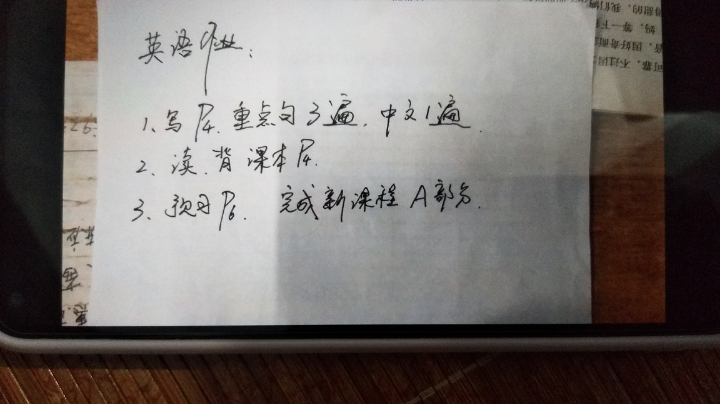 英语作业:
1、写P4.重点句3遍.中文1遍.
2、读.背课本P4.
3、预习P6. 完成新课程A部分.